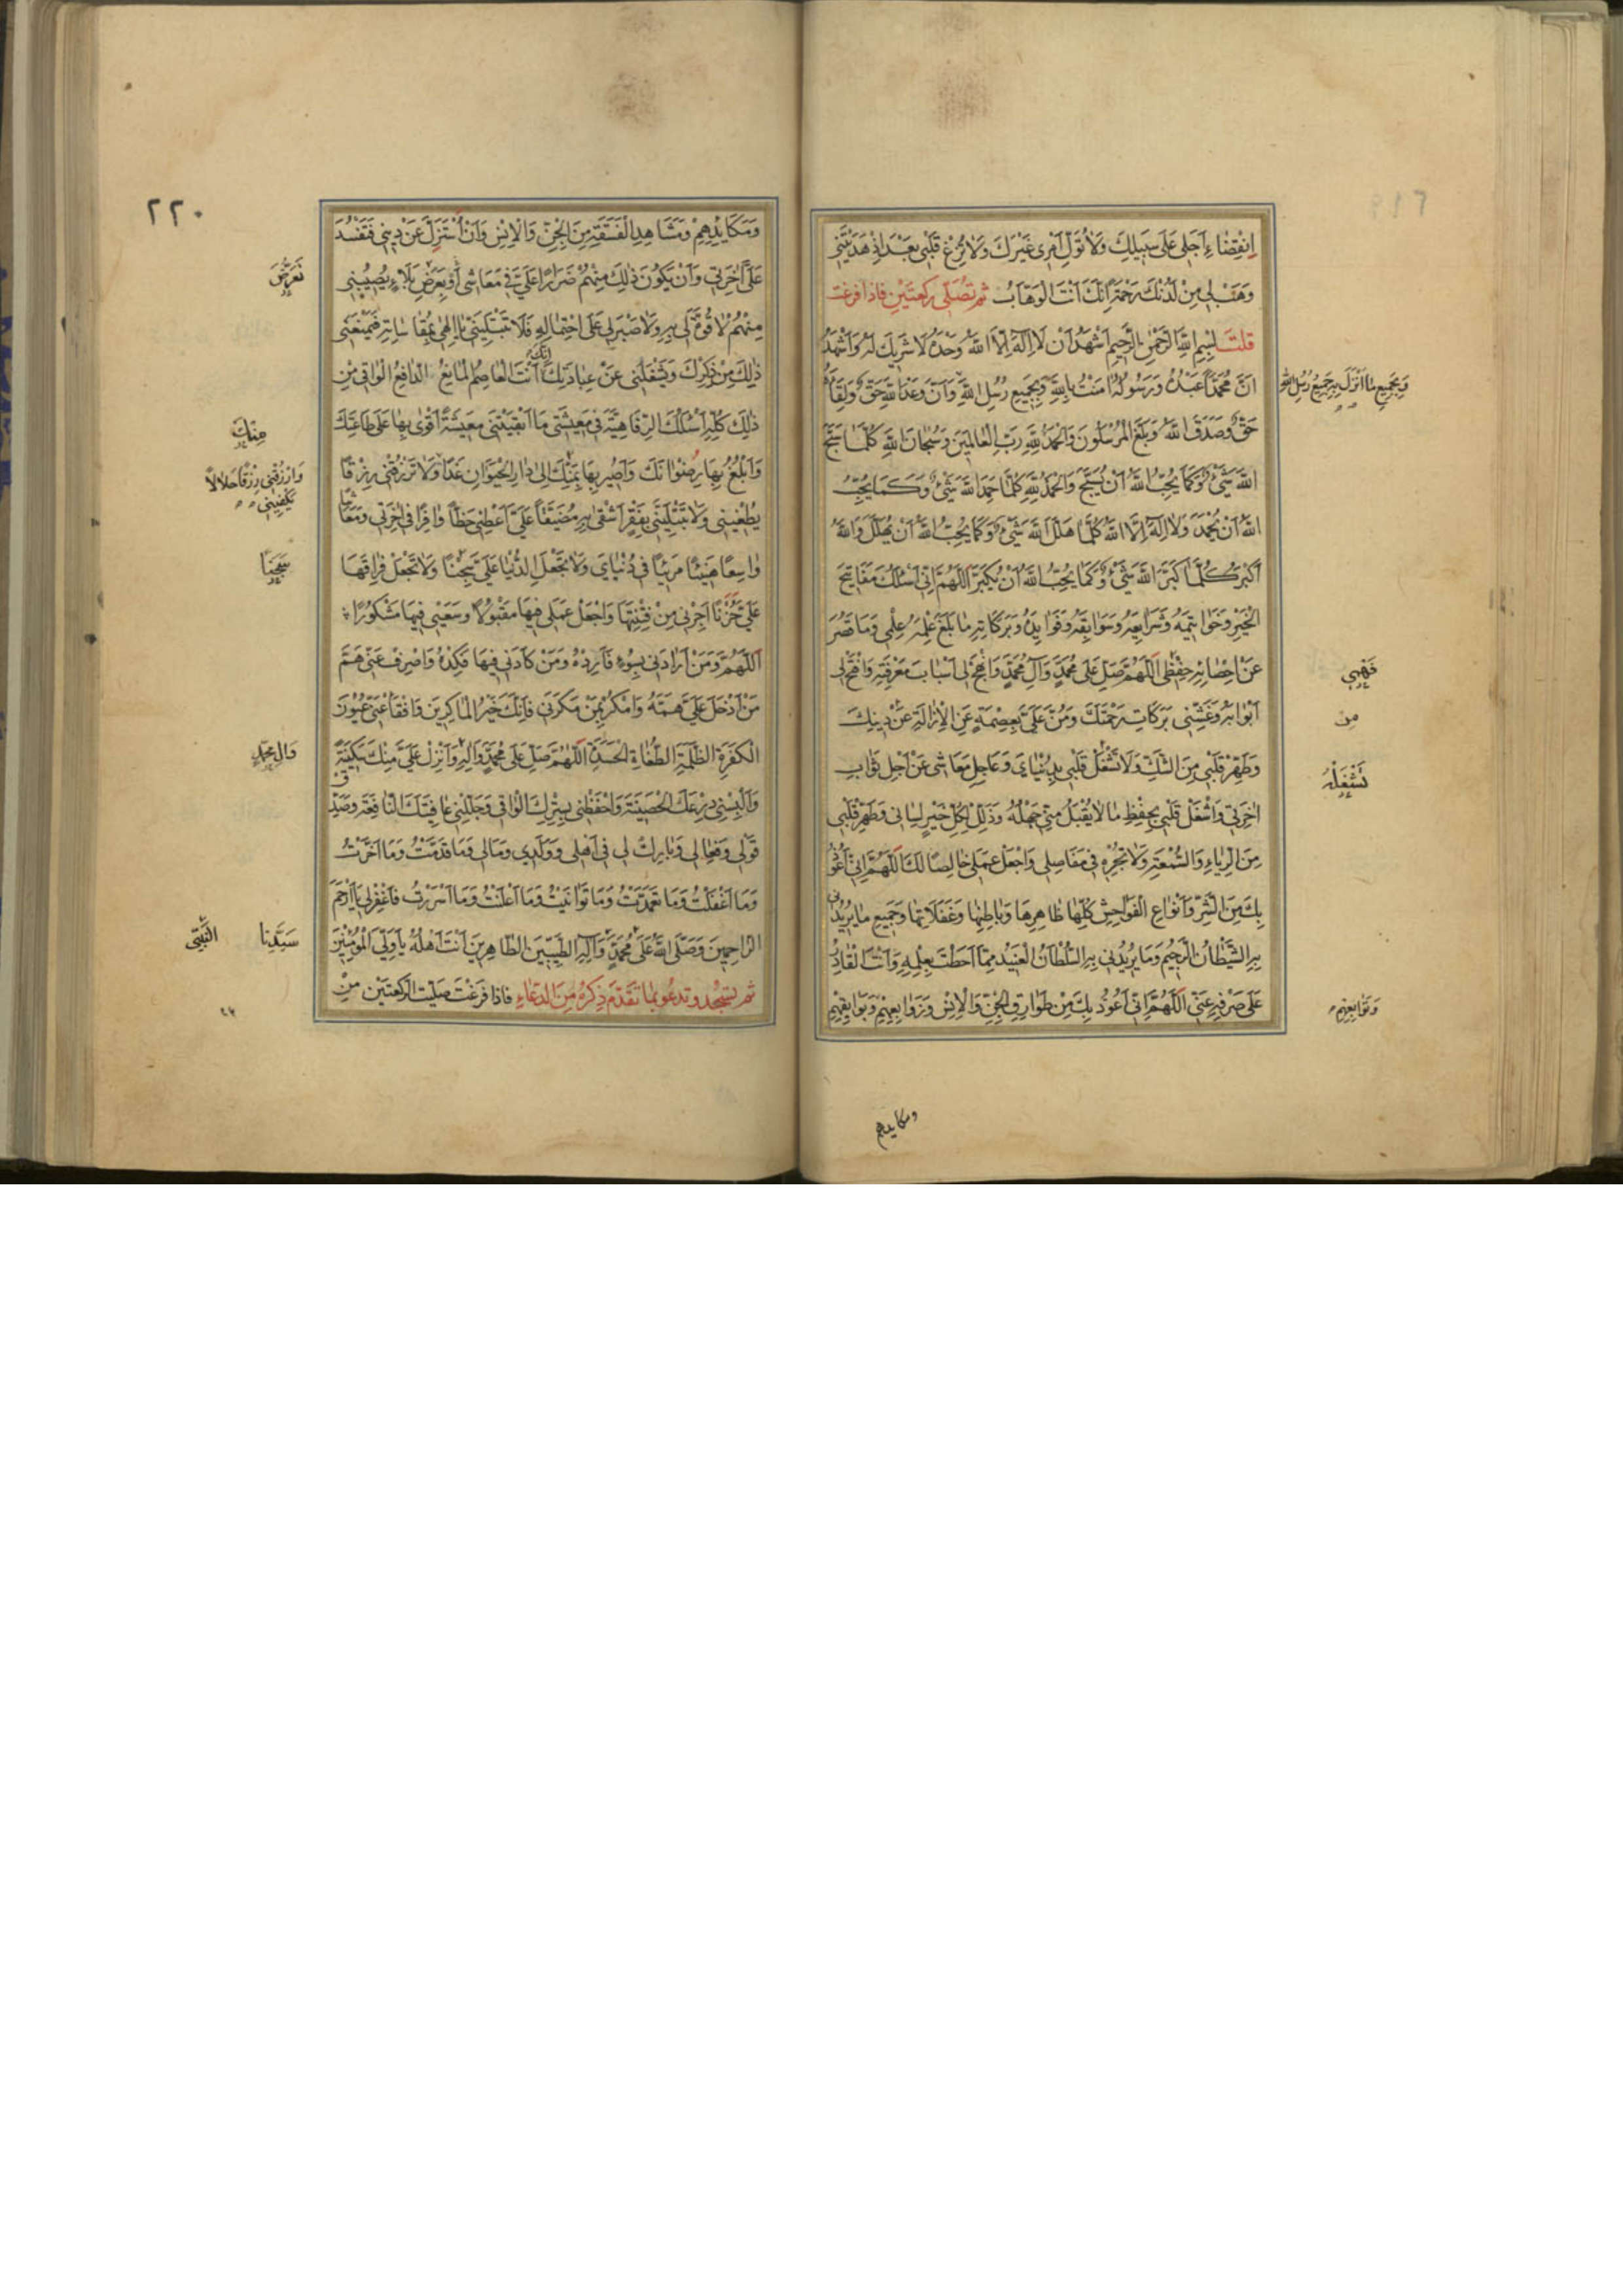 اِنْقِضٰاءِ اَجَلى عَلى سَبيلِكَ وَلاٰ تُوَلِّ اَمْرى غَيْرَكَ وَلاٰ تُزِغْ قَلْبى بَعْدَ اِذْ هَدَيْتَنى
وَهَبْ لى مِنْ لَدُنْكَ رَحْمَةً اِنَّكَ اَنْتَ الْوَهّٰابُ ثم تُصَلّى رَكعتَيْنِ فاذا فرغت
قلتَ بِسْمِ اللهِ الرَّحْمٰنِ الرَّحيمِ اَشْهَدُ اَنْ لاٰ اِلٰهَ اِلاَّ اللهُ وَحْدَهُ لاٰ شَريكَ لَهُ وَاَشْهَدُ
اَنَّ مُحَمَّداً عَبْدُهُ وَرَسُولُهُ اٰمَنْتُ بِاللهِ وَبِجَميعِ رُسُلِ اللهِ وَاَنَّ وَعْدَ اللهِ حَقٌّ وَلِقٰاءَهُ
وَبِجَميعِ مٰا اَنْزَلَ بِهِ جَميعَ رُسُلِ اللهِ
حَقٌّ وَصَدَقَ اللهُ وَبَلَّغَ الْمُرْسَلُونَ وَالْحَمْدُ لِلّٰهِ رَبِّ الْعٰالَمينَ وَسُبْحٰانَ اللهِ كُلَّمٰا سَبَّحَ
اللهَ شَىْءٌ وَكَمٰا يُحِبُّ اللهُ اَنْ يُسَبَّحَ وَالْحَمْدُ لِلّٰهِ كُلَّمٰا حَمِدَ اللهَ شَىْءٌ وَكَمٰا يُحِبُّ
اللهُ اَنْ يُحْمَدَ وَلاٰ اِلٰهَ اِلاَّ اللهُ كُلَّمٰا هَلَّلَ اللهَ شَىْءٌ وَكَمٰا يُحِبُّ اللهُ اَنْ يُهَلَّلَ وَاللهُ
اَكْبَرُ كُلَّمٰا كَبَّرَ اللهَ شَىْءٌ وَكَمٰا يُحِبُّ اللهُ اَنْ يُكَبَّرَ اَللّٰهُمَّ اِنّى اَسْئَلُكَ مَفٰاتيحَ
الْخَيْرِ وَخَوٰاتيمَهُ وَشَرٰايِعَهُ وَسَوٰابِقَهُ وَفَوٰايِدَهُ وَبَرَكٰاتِهِ مٰا بَلَغَ عِلْمَهُ عِلْمى وَمٰا قَصُرَ
عَنْ اِحْصٰائِهِ حِفْظى اَللّٰهُمَّ صَلِّ عَلى مُحَمَّدٍ وَآلِ مُحَمَّدٍ وَانْهَجْ لى اَسْبٰابَ مَعْرِفَتِهِ وَافْتَحْ لى
اَبْوٰابَهُ وَغَشِّنى بَرَكٰاتِ رَحْمَتِكَ وَمُنَّ عَلَىَّ بِعِصْمَةٍ عَنِ الْاِزٰالَةِ عَنْ دينِكَ
مِن
وَطَهِّرْ قَلْبى مِنَ الشَّكِّ وَلاٰ تَشْغَلْ قَلْبى بِدُنْيٰاىَ وَعٰاجِلِ مَعٰاشى عَنْ اٰجِلِ ثَوٰابِ
تَشْغَلْهُ
اٰخِرَتى وَاشْغَلْ قَلْبى بِحِفْظِ مٰا لاٰ يُقْبَلُ مِنّى جَهْلُهُ وَذَلِّلْ لِكُلِّ خَيْرٍ لِسٰانى وَطَهِّرْ قَلْبى
مِنَ الرِّيٰاءِ وَالسُّمْعَةِ وَلاٰ تُجْرِهِ فى مَفٰاصِلى وَاجْعَلْ عَمَلى خٰالِصاً لَكَ اَللّٰهُمَّ اِنّى اَعُوذُ
بِكَ مِنَ الشَّرِّ وَاَنْوٰاعِ الْفَوٰاحِشِ كُلِّهٰا ظٰاهِرِهٰا وَبٰاطِنِهٰا وَغَفَلاٰتِهٰا وَجَميعِ مٰا يُريدُنى
بِهِ الشَّيْطٰانُ الرَّجيمُ وَمٰا يُريدُنى بِهِ السُّلْطٰانُ الْعَنيدُ مِمّٰا اَحَطْتَ بِعِلْمِهِ وَاَنْتَ الْقٰادِرُ
عَلى صَرْفِهِ عَنّى اَللّٰهُمَّ اِنّى اَعُوذُ بِكَ مِنْ طَوٰارِقِ الْجِنِّ وَالْاِنْسِ وَزَوٰابِعِهِمْ وَبَوٰائِقِهِمْ
وَتَوٰابِعِهِمْ
ومكايدهم
٢٢٠
وَمَكٰايِدِهِمْ وَمَشٰاهِدِ الْفَسَقَةِ مِنَ الْجِنِّ وَالْاِنْسِ وَاَنْ اُسْتَزَلَّ عَنْ دينى فَتَفْسُدَ
عَلَىَّ اٰخِرَتى وَاَنْ يَكُونَ ذٰلِكَ مِنْهُمْ ضَرَراً عَلَىَّ فى مَعٰاشى اَوْ بِعَرَضِ بَلاٰءٍ يُصيبُنى
تَعَرُّضَ
مِنْهُمْ لاٰ قُوَّةَ لى بِهِ وَلاٰ صَبْرَ لى عَلَى احْتِمٰالِهِ فَلاٰ تَبْتَلِيَنّى يٰا اِلٰهى بِمُقٰاسٰاتِهِ فَيَمْنَعَنى
ذٰلِكَ مِنْ ذِكْرِكَ وَيَشْغَلَنى عَنْ عِبٰادَتِكَ اِنَّكَ اَنْتَ الْعٰاصِمُ الْمٰانِعُ الدّٰافِعُ الْوٰاقى مِنْ
ذٰلِكَ كُلِّهِ اَسْئَلُكَ الرَّفٰاهِيَّةَ فى مَعيشَتى مٰا اَبْقَيْتَنى مَعيشَةً اَقْوٰى بِهٰا عَلى طٰاعَتِكَ
مِنْكَ
وَاَبْلُغُ بِهٰا رِضْوٰانَكَ وَاَصيرُ بِهٰا بِمَنِّكَ اِلى دٰارِ الْحَيَوٰانِ غَداً وَلاٰ تَرْزُقْنى رِزْقاً
وَارْزُقْنى رِزْقاً حَلاٰلاً
يَكْفينى
يُطْغينى وَلاٰ تَبْتَلِيَنّى بِفَقْرٍ اَشْقٰى بِهِ مُضَيَّقاً عَلَىَّ اَعْطِنى حَظّاً وٰافِراً فى اٰخِرَتى وَمَعٰاشاً
وٰاسِعاً هَنيئاً مَريئاً فى دُنْيٰاىَ وَلاٰ تَجْعَلِ الدُّنْيٰا عَلَىَّ سِجْناً وَلاٰ تَجْعَلْ فِرٰاقَهٰا
سِجْنًا
عَلَىَّ حُزْناً اَجِرْنى مِنْ فِتْنَتِهٰا وَاجْعَلْ عَمَلى فيهٰا مَقْبُولاً وَسَعْيى فيهٰا مَشْكُوراً
اَللّٰهُمَّ وَمَنْ اَرٰادَنى بِسُوءٍ فَاَرِدْهُ وَمَنْ كٰادَنى فيهٰا فَكِدْهُ وَاصْرِفْ عَنّى هَمَّ
مَنْ اَدْخَلَ عَلَىَّ هَمَّهُ وَامْكُرْ بِمَنْ مَكَرَ بى فَاِنَّكَ خَيْرُ الْمٰاكِرينَ وَافْقَأْ عَنّى عُيُونَ
الْكَفَرَةِ الظَّلَمَةِ الطُّغٰاةِ الْحَسَدَةِ اَللّٰهُمَّ صَلِّ عَلى مُحَمَّدٍ وَآلِهِ وَاَنْزِلْ عَلَىَّ مِنْكَ سَكينَةً
وَالِ مُحَمَّدٍ
وَاَلْبِسْنى دِرْعَكَ الْحَصينَةَ وَاحْفَظْنى بِسِتْرِكَ الْوٰاقى وَجَلِّلْنى عٰافِيَتَكَ النّٰافِعَةَ وَصَدِّقْ
قَوْلى وَفِعٰالى وَبٰارِكْ لى فى اَهْلى وَوَلَدى وَمٰالى وَمٰا قَدَّمْتُ وَمٰا اَخَّرْتُ
وَمٰا اَغْفَلْتُ وَمٰا تَعَمَّدْتُ وَمٰا تَوٰانَيْتُ وَمٰا اَعْلَنْتُ وَمٰا اَسْرَرْتُ فَاغْفِرْ لى يٰا اَرْحَمَ
الرّٰاحِمينَ وَصَلَّى اللهُ عَلى مُحَمَّدٍ وَآلِهِ الطَّيِّبينَ الطّٰاهِرينَ اَنْتَ اَهْلُهُ يٰا وَلِىَّ الْمُؤْمِنينَ
سَيِّدِنا النَّبِىِّ
ثم تسجُد وتدعُو بمٰا تقَدّمَ ذِكرُهُ مِنَ الدّعٰاءِ فاذا فَرَغْتَ صَلّيتَ الرّكعتَين مِنْ